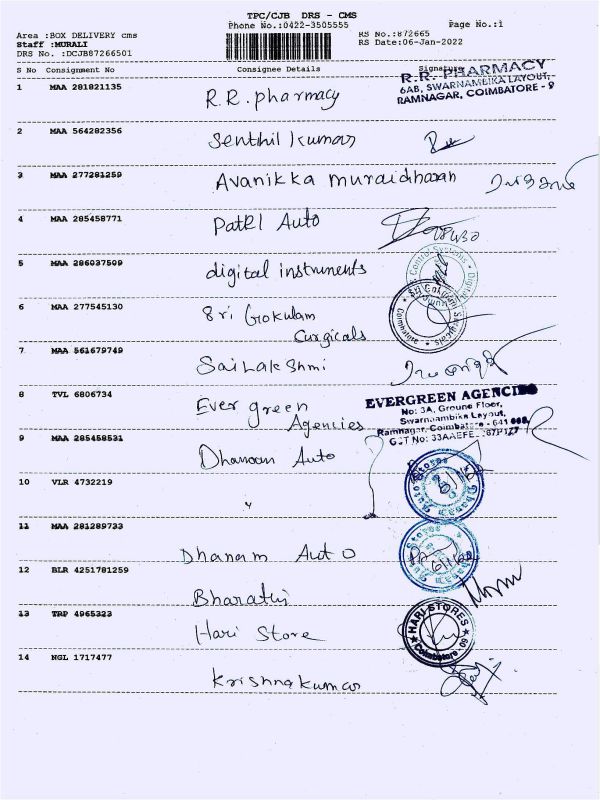 TPC/CJB DRS - CMS
Phone No.:0422-3505555
Page No.:1
Area :BOX DELIVERY cms
RS No.:872665
Staff :MURALI
RS Date:06-Jan-2022
DRS No. :DCJB87266501
S No Consignment No Consignee Details Signature
R.R. PHARMACY
6AB, SWARNAMBIKA LAYOUT,
RAMNAGAR, COIMBATORE - 9
1 MAA 281821135 R.R. pharmacy
2 MAA 564282356 Senthil Kumar
3 MAA 277281259 Avanikka muraidharan
4 MAA 285458771 Patel Auto
5 MAA 286037509 digital instruments
Control Systems * Digital
6 MAA 277545130 Sri Gokulam
Surgicals
Sri Gokulam Surgicals * Coimbatore *
7 MAA 561679749 Sai Lakshmi
8 TVL 6806734 Ever green
Agencies
EVERGREEN AGENCIES
No: 3A, Groune Floor,
Swarnaambika Layout,
Ramnagar, Coimbatore - 641 009.
GST No: 33AAEFE
9 MAA 285458531 Dhanam Auto
10 VLR 4732219 "
Dhanam Auto Stores
11 MAA 281289733 Dhanam Auto
Dhanam Auto Stores
12 BLR 4251781259 Bharathi
13 TRP 4965323 Hari Store
HARI STORES
Coimbatore - 09
14 NGL 1717477 Krishnakumar